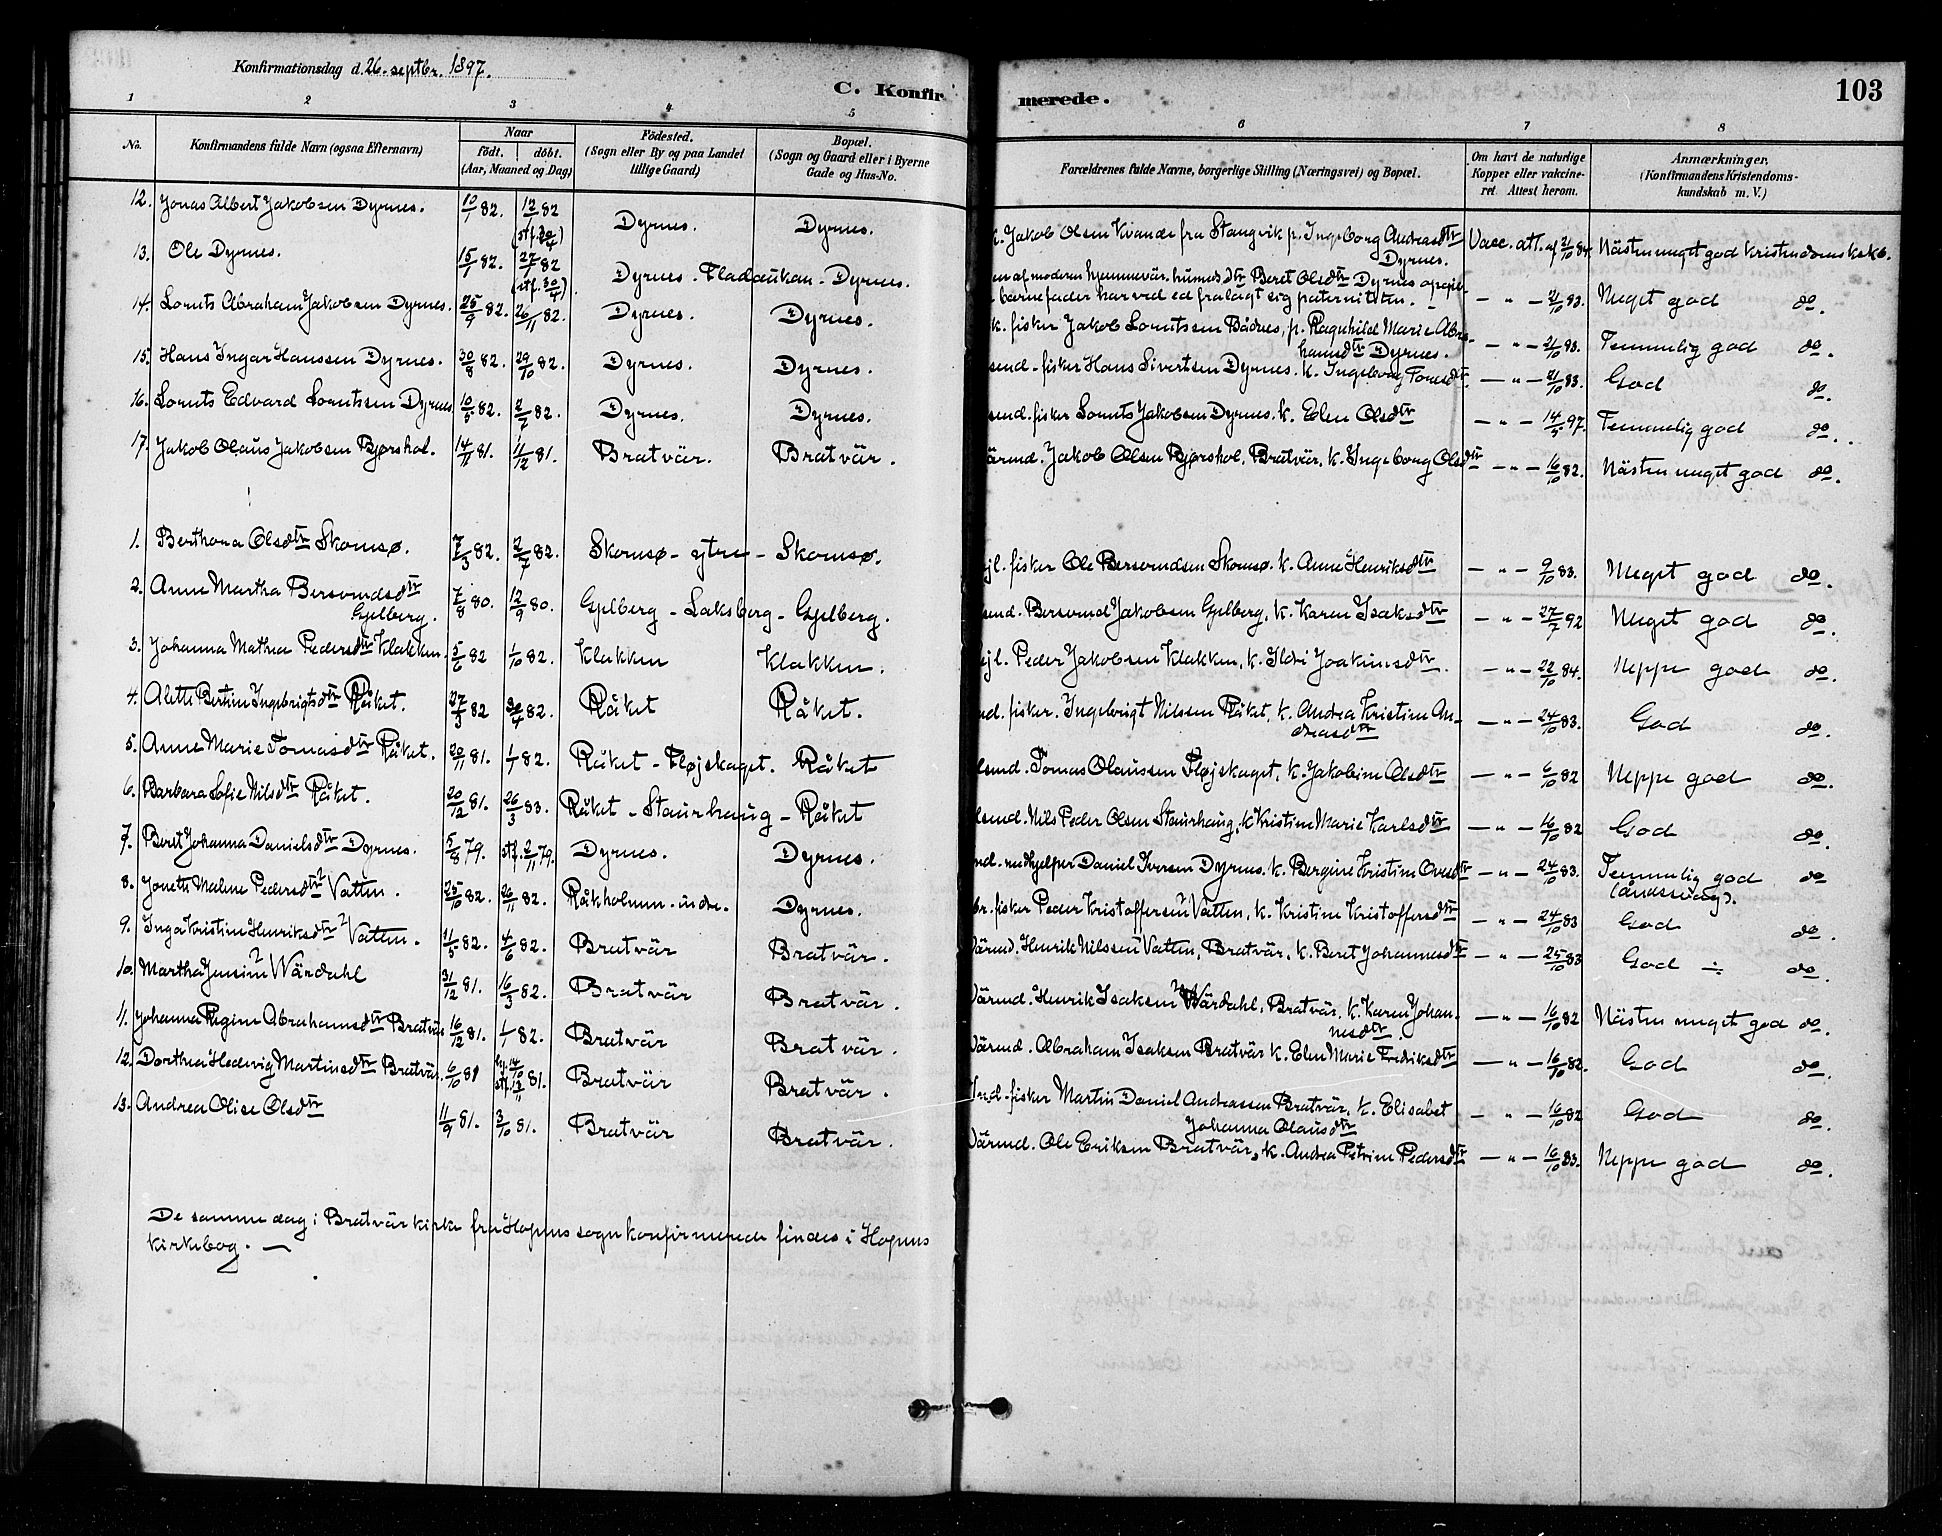 Konfirmationsdag d. 26. septbr. 1897.
C. Konfirmerede.
103
1 2 3 4 5 6 7 8
No.
Konfirmandens fulde Navn (ogsaa Efternavn)
Naar
født. døbt.
(Aar, Maaned og Dag)
Fødested.
(Sogn eller By og paa Landet
tillige Gaard)
Bopæl.
(Sogn og Gaard eller i Byerne
Gade og Hus-No.
Forældrenes fulde Navne, borgerlige Stilling (Næringsvei) og Bopæl.
Om havt de naturlige
Kopper eller vakcine-
ret. Attest herom.
Anmærkninger.
(Konfirmandens Kristendoms-
kundskab m. V.)
12. Jonas Albert Jakobsen Dyrnes. 10/1 82. 12/2 82 (stf. 30/4) Dyrnes. Dyrnes. k. Jakob Olsen Kvande fra Stangvik p. Ingeborg Andreasdtr Dyrnes. Vacc. att. af 21/10 84. Nästen meget god kristendomskskb.
13. Ole Dyrnes. 15/1 82. 27/1 82 (stf. 30/4). Dyrnes. Fladaukan - Dyrnes. Beret Olsdtr Dyrnes opgiven
barnefader har ved ed fralagt sig paterniteten. — " — 21/10 83. Meget god do.
14. Lornts Abraham Jakobsen Dyrnes. 25/9 82. 26/11 82. Dyrnes. Dyrnes. k. fisker Jakob Lorntsen Bådnes, p. Ragnhild Marie Abra-
hamsdtr Dyrnes. — " — 21/10 83. Temmelig god do.
15. Hans Ingar Hanssen Dyrnes. 30/8 82. 29/10 82. Dyrnes. Dyrnes. send. fisker Hans Sivertsen Dyrnes. k. Ingeborg Toresdtr. — " — 21/10 83. God do.
16. Lornts Edvard Lorntssen Dyrnes 10/5 82. 2/7 82. Dyrnes. Dyrnes. send. fisker Lornts Jakobsen Dyrnes. k. Elen Olsdtr — " — 14/5 97. Temmelig god do.
17. Jakob Olaus Jakobsen Bjørshol. 14/11 81. 11/12 81. Bratvär. Bratvär. ärmd. Jakob Olsen Bjørshol, Bratvär, k. Ingeborg Olsdtr — " — 16/10 82. Nästen meget god do.
1. Berthona Olsdtr Skomsø. 7/3 82. 2/7 82. Skomsø - ytre - Skomsø. jl. fisker Ole Bersvendsen Skomsø. k. Anne Henriksdtr — " — 9/10 83. Meget god do.
2. Anne Martha Bersvendsdtr
Gjelberg. 7/8 80. 12/9 80. Gjelberg - Laksberg - Gjelberg. send. Bersvend Jakobsen Gjelberg, k. Karen Isaksdtr — " — 27/7 92 Meget god do.
3. Johanna Mathea Pedersdtr Klakken. 5/6 82 1/10 82. Klakken Klakken. jl. Peder Jakobsen Klakken, k. Ildri Joakimsdtr. — " — 22/10 84. Neppe god do.
4. Alette Bertine Ingebrigtsdtr Råket. 27/3 82 30/4 82. Råket Råket. nd. fisker. Ingebrigt Nilsen Råket, k. Andrea Kristine An-
dreasdtr — " — 24/10 83. God do.
5. Anne Marie Tomasdtr Råket. 20/11 81. 1/1 82. Råket - Fløjskaget. Råket lsmd. Tomas Olaussen Fløjskaget, k. Jakobine Olsdtr — " — 6/10 82 Neppe god do.
6. Barbara Sofie Nilsdtr Råket. 20/12 81. 26/3 83. Råket - Staurhaug - Råket lsmd. Nils Peder Olsen Staurhaug, k. Kristine Marie Karlsdtr — " — 16/10 82 God do.
7. Beret Johanna Danielsdtr Dyrnes. 5/8 79. stf. 2/11 79. Dyrnes. Dyrnes. nd. medhjelper Daniel Iversen Dyrnes. k. Bergine Kristine Ovesdtr — " — 24/10 83. Temmelig god do
(åndssvag).
8. Jonette Malene Pedersdtr Vatten. 25/10 82. 26/11 82. Råkholmen - indre. Dyrnes. br. fisker Peder Kristoffersen Vatten, k. Kristine Kristoffersdtr — " — 24/10 83 God do.
9. Inga Kristine Henriksdtr Vatten. 11/5 82. 4/6 82. Bratvär Bratvär. Värmd. Henrik Nilssen Vatten, Bratvär, k. Beret Johannesdtr — " — 25/10 83 God do.
10. Martha Jensine Wärdahl 31/12 81. 16/3 82. Bratvär Bratvär. Värmd. Henrik Isaksen Wärdahl, Bratvär, k. Karen Johan-
nesdtr. — " — 16/10 82 Nästen meget god do.
11. Johanna Regine Abrahamsdtr Bratvär 16/12 81. 1/1 82. Bratvär Bratvär. Värmd. Abraham Isaksen Bratvär k. Elen Marie Fredriksdtr — " — 16/10 82. God do.
12. Dorthea Hedevig Martinsdtr Bratvär. 6/10 81 hj. 14/10 stf. 13/11 81. Bratvär Bratvär. Ind. fisker Martin Daniel Andreassen Bratvär, k. Elisabet
Johanna Olausdtr — " — 16/10 82 God do.
13. Andrea Olise Olsdtr 11/9 81. 3/10 81. Bratvär Bratvär. Värmd. Ole Eriksen Bratvär, k. Andrea Petrine Pedersdtr — " — 16/10 83. Neppe god do.
De samme dag i Bratvär kirke fra Hopens sogn konfirmerede findes i Hopens
kirkebog. —